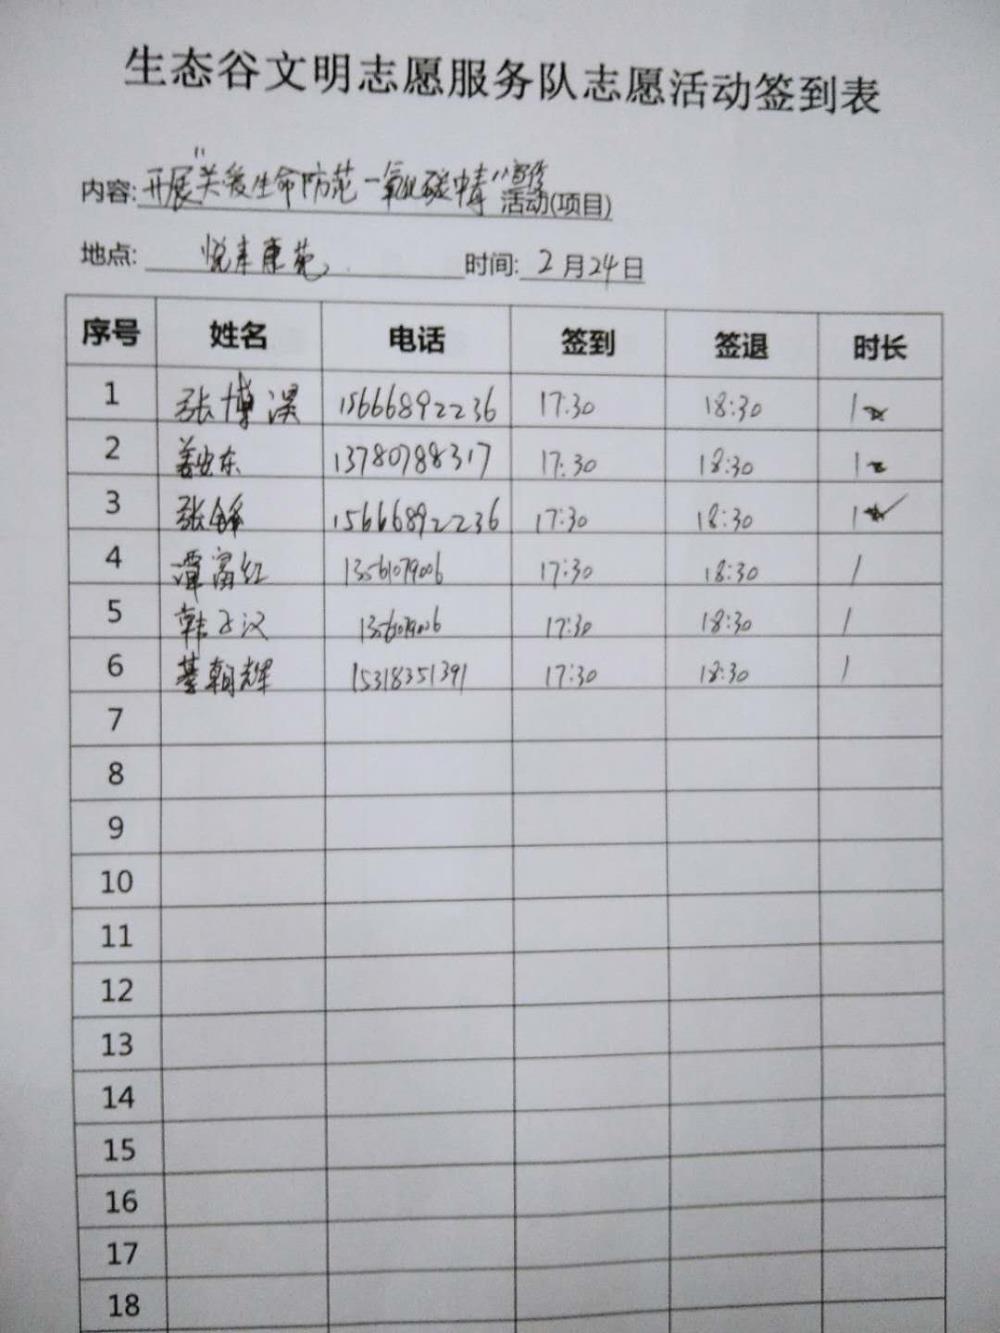 生态谷文明志愿服务队志愿活动签到表
内容: 开展"关爱生命防范一氧化碳中毒"宣传 活动(项目)
地点: 悦来康苑 时间: 2月24日
序号 姓名 电话 签到 签退 时长
1 张博淏 15666892236 17:30 18:30 1
2 姜安东 13780788317 17:30 18:30 1
3 张锋 15666892236 17:30 18:30 1
4 谭富红 13561079006 17:30 18:30 1
5 韩子汉 17:30 18:30 1
6 綦朝辉 15318351391 17:30 18:30 1
7
8
9
10
11
12
13
14
15
16
17
18